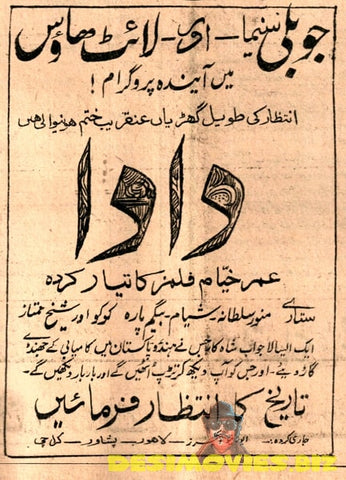 جوبلی سنیما - اور - لائٹ ھاؤس
میں آیندہ پروگرام !
انتظار کی طویل گھڑیاں عنقریب ختم ہونیوالی ہیں
دادا
عمر خیّام فلمز کا تیار کردہ
ستارے منور سلطانہ شیام بیگم پارہ ککو اور شیخ مختار
ایک ایسا لاجواب شاہکار جس نے ہندوپاکستان میں کامیابی کے جھنڈے
گاڑ دیئے - اور جس کو آپ دیکھ کر تڑپ اُٹھیں گے اور بار بار دیکھیں گے -
تاریخ کا انتظار فرمائیں
جاری کردہ - پکچرز - لاہور پشاور - کراچی
DESIMOVIES.BIZ